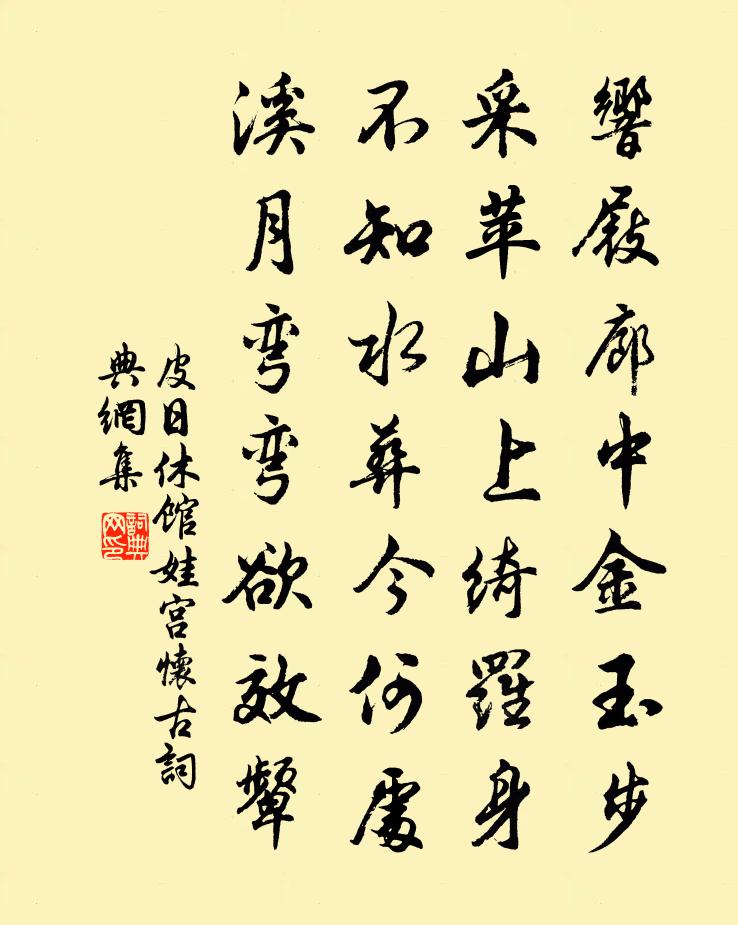 響屐廊中金玉步
采苹山上綺羅身
不知水葬今何處
溪月弯弯欲效顰
皮日休馆娃宫懷古詞
典網集
詞典
网印